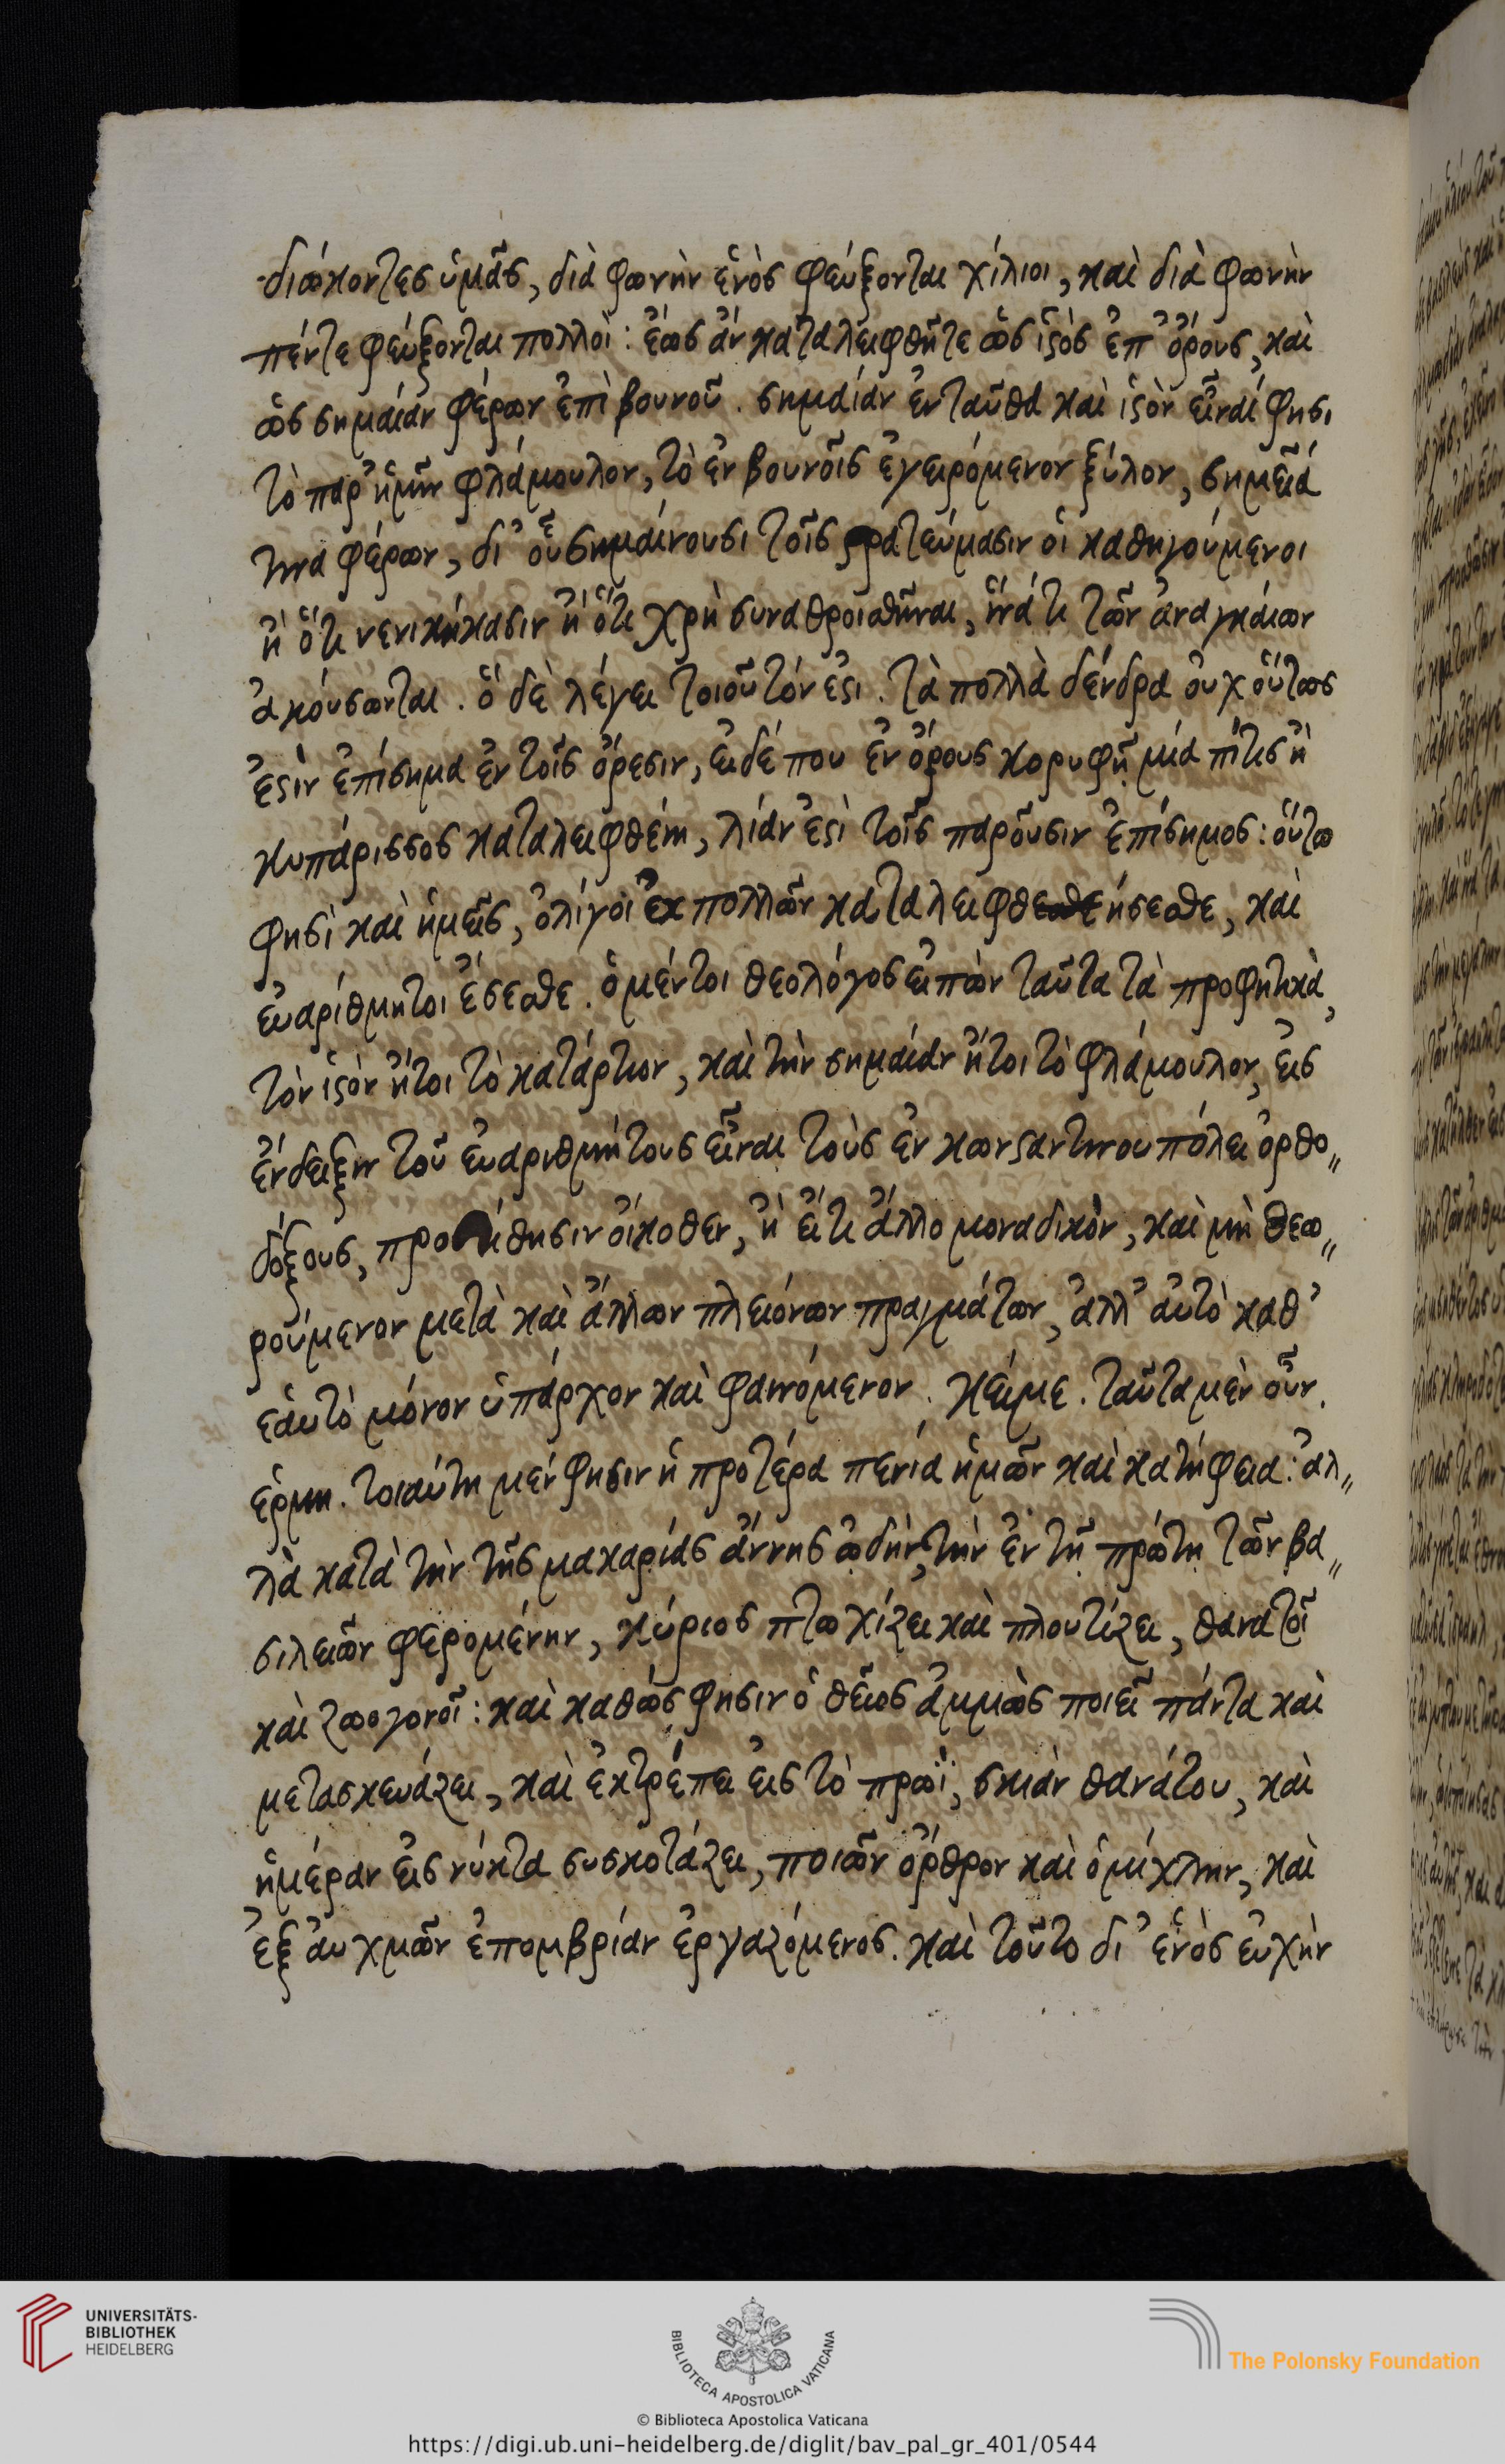 διώκοντες ὑμᾶς, διὰ φωνὴν ἑνὸς φεύξονται χίλιοι, καὶ διὰ φωνὴν
πέντε φεύξονται πολλοί: ἕως ἂν καταλειφθῆτε ὡς ἱστὸς ἐπ' ὄρους, καὶ
ὡς σημαίαν φέρων ἐπὶ βουνοῦ. σημαίαν ἐνταῦθα καὶ ἱστὸν εἶναί φησι
τὸ παρ' ἡμῖν φλάμουλον, τὸ ἐν βουνοῖς ἐγειρόμενον ξύλον, σημεῖά
τινα φέρων, δι' οὗ σημαίνουσι τοῖς στρατεύμασιν οἱ καθηγούμενοι
ἢ ὅτι νενικήκασιν ἢ ὅτι χρὴ συναθροισθῆναι, ἵνά τι τῶν ἀναγκαίων
ἀκούσωνται. ὃ δὲ λέγει τοιοῦτόν ἐστι. τὰ πολλὰ δένδρα οὐχ οὕτως
ἐστὶν ἐπίσημα ἐν τοῖς ὄρεσιν, εἰ δέ που ἐν ὄρους κορυφῇ μία πίτις ἢ
κυπάρισσος καταλειφθείη, λίαν ἐστὶ τοῖς παροῦσιν ἐπίσημος: οὕτω
φησὶ καὶ ἡμεῖς, ὀλίγοι ἐκ πολλῶν καταλειφθήσεσθε, καὶ
εὐαρίθμητοι ἔσεσθε. ὁ μέντοι θεολόγος εἰπὼν ταῦτα τὰ προφητικὰ,
τὸν ἱστὸν ἤτοι τὸ κατάρτιον, καὶ τὴν σημαίαν ἤτοι τὸ φλάμουλον, εἰς
ἔνδειξιν τοῦ εὐαριθμήτους εἶναι τοὺς ἐν κωνσταντινουπόλει ὀρθο„
δόξους, προστίθησιν οἴκοθεν, ἢ εἴ τι ἄλλο μοναδικὸν, καὶ μὴ θεω„
ρούμενον μετὰ καὶ ἄλλων πλειόνων πραγμάτων, ἀλλ' αὐτὸ καθ'
ἑαυτὸ μόνον ὑπάρχον καὶ φαινόμενον. κείμε. ταῦτα μὲν οὖν.
ἑρμη. τοιαύτη μέν φησιν ἡ προτέρα πενία ἡμῶν καὶ κατήφεια: ἀλ„
λὰ κατὰ τὴν τῆς μακαρίας ἄννης ᾠδὴν, τὴν ἐν τῇ πρώτῃ τῶν βα„
σιλειῶν φερομένην, κύριος πτωχίζει καὶ πλουτίζει, θανατοῖ
καὶ ζωογονοῖ: καὶ καθώς φησιν ὁ θεῖος ἀμμὼς ποιεῖ πάντα καὶ
μετασκευάζει, καὶ ἐκτρέπει εἰς τὸ πρωῒ, σκιὰν θανάτου, καὶ
ἡμέραν εἰς νύκτα συσκοτάζει, ποιῶν ὄρθρον καὶ ὁμίχλην, καὶ
ἐξ αὐχμῶν ἐπομβρίαν ἐργαζόμενος. καὶ τοῦτο δι' ἑνὸς εὐχὴν
UNIVERSITÄTS-
BIBLIOTHEK
HEIDELBERG
BIBLIOTECA APOSTOLICA VATICANA
The Polonsky Foundation
© Biblioteca Apostolica Vaticana
https://digi.ub.uni-heidelberg.de/diglit/bav_pal_gr_401/0544